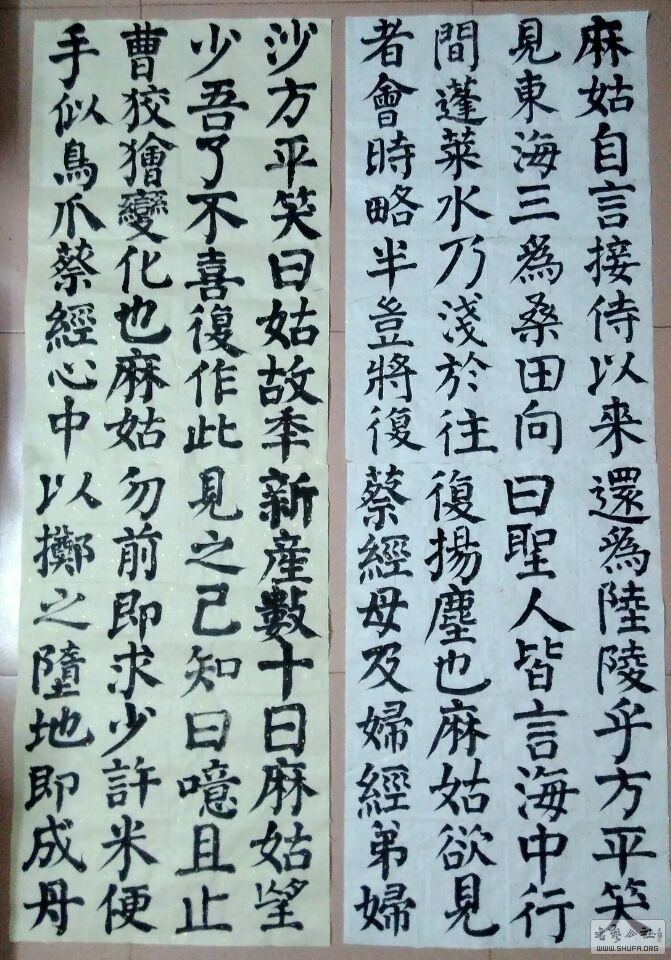 麻姑自言接侍以来
見東海三爲桑田向
間蓬萊水乃淺於往
者會時略半豈將復
還爲陸陵乎方平笑
曰聖人皆言海中行
復揚塵也麻姑欲見
蔡經母及婦經弟婦
新産數十日麻姑望
見之已知曰噫且止
勿前即求少許米便
以擲之墮地即成丹
沙方平笑曰姑故秊
少吾了不喜復作此
曹狡獪變化也麻姑
手似鳥爪蔡經心中
WWW.SHUFA.ORG